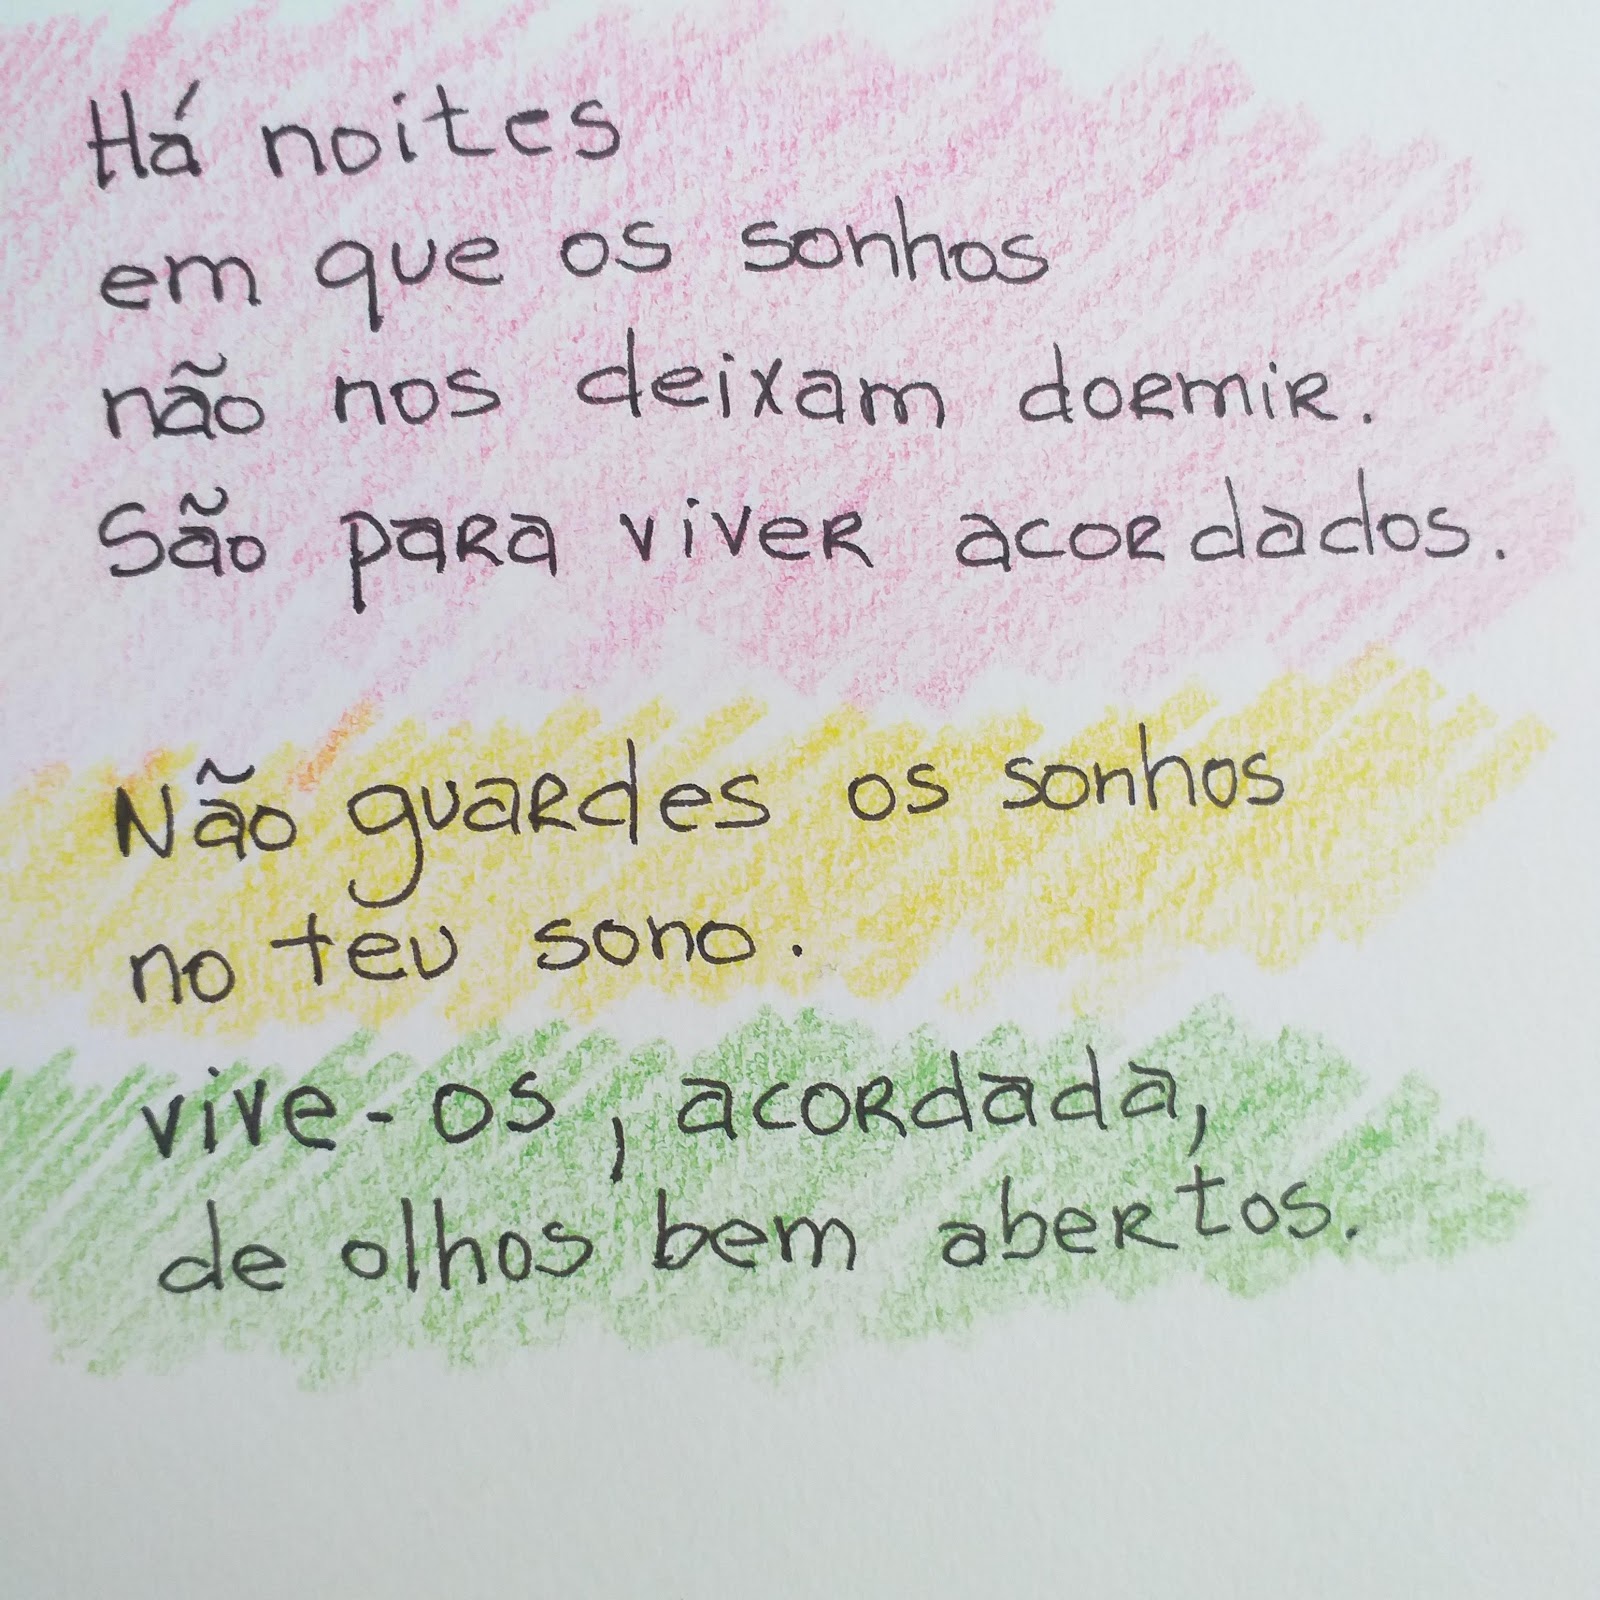 Há noites
em que os sonhos
não nos deixam dormir.
São para viver acordados.
Não guardes os sonhos
no teu sono.
vive-os, acordada,
de olhos bem abertos.